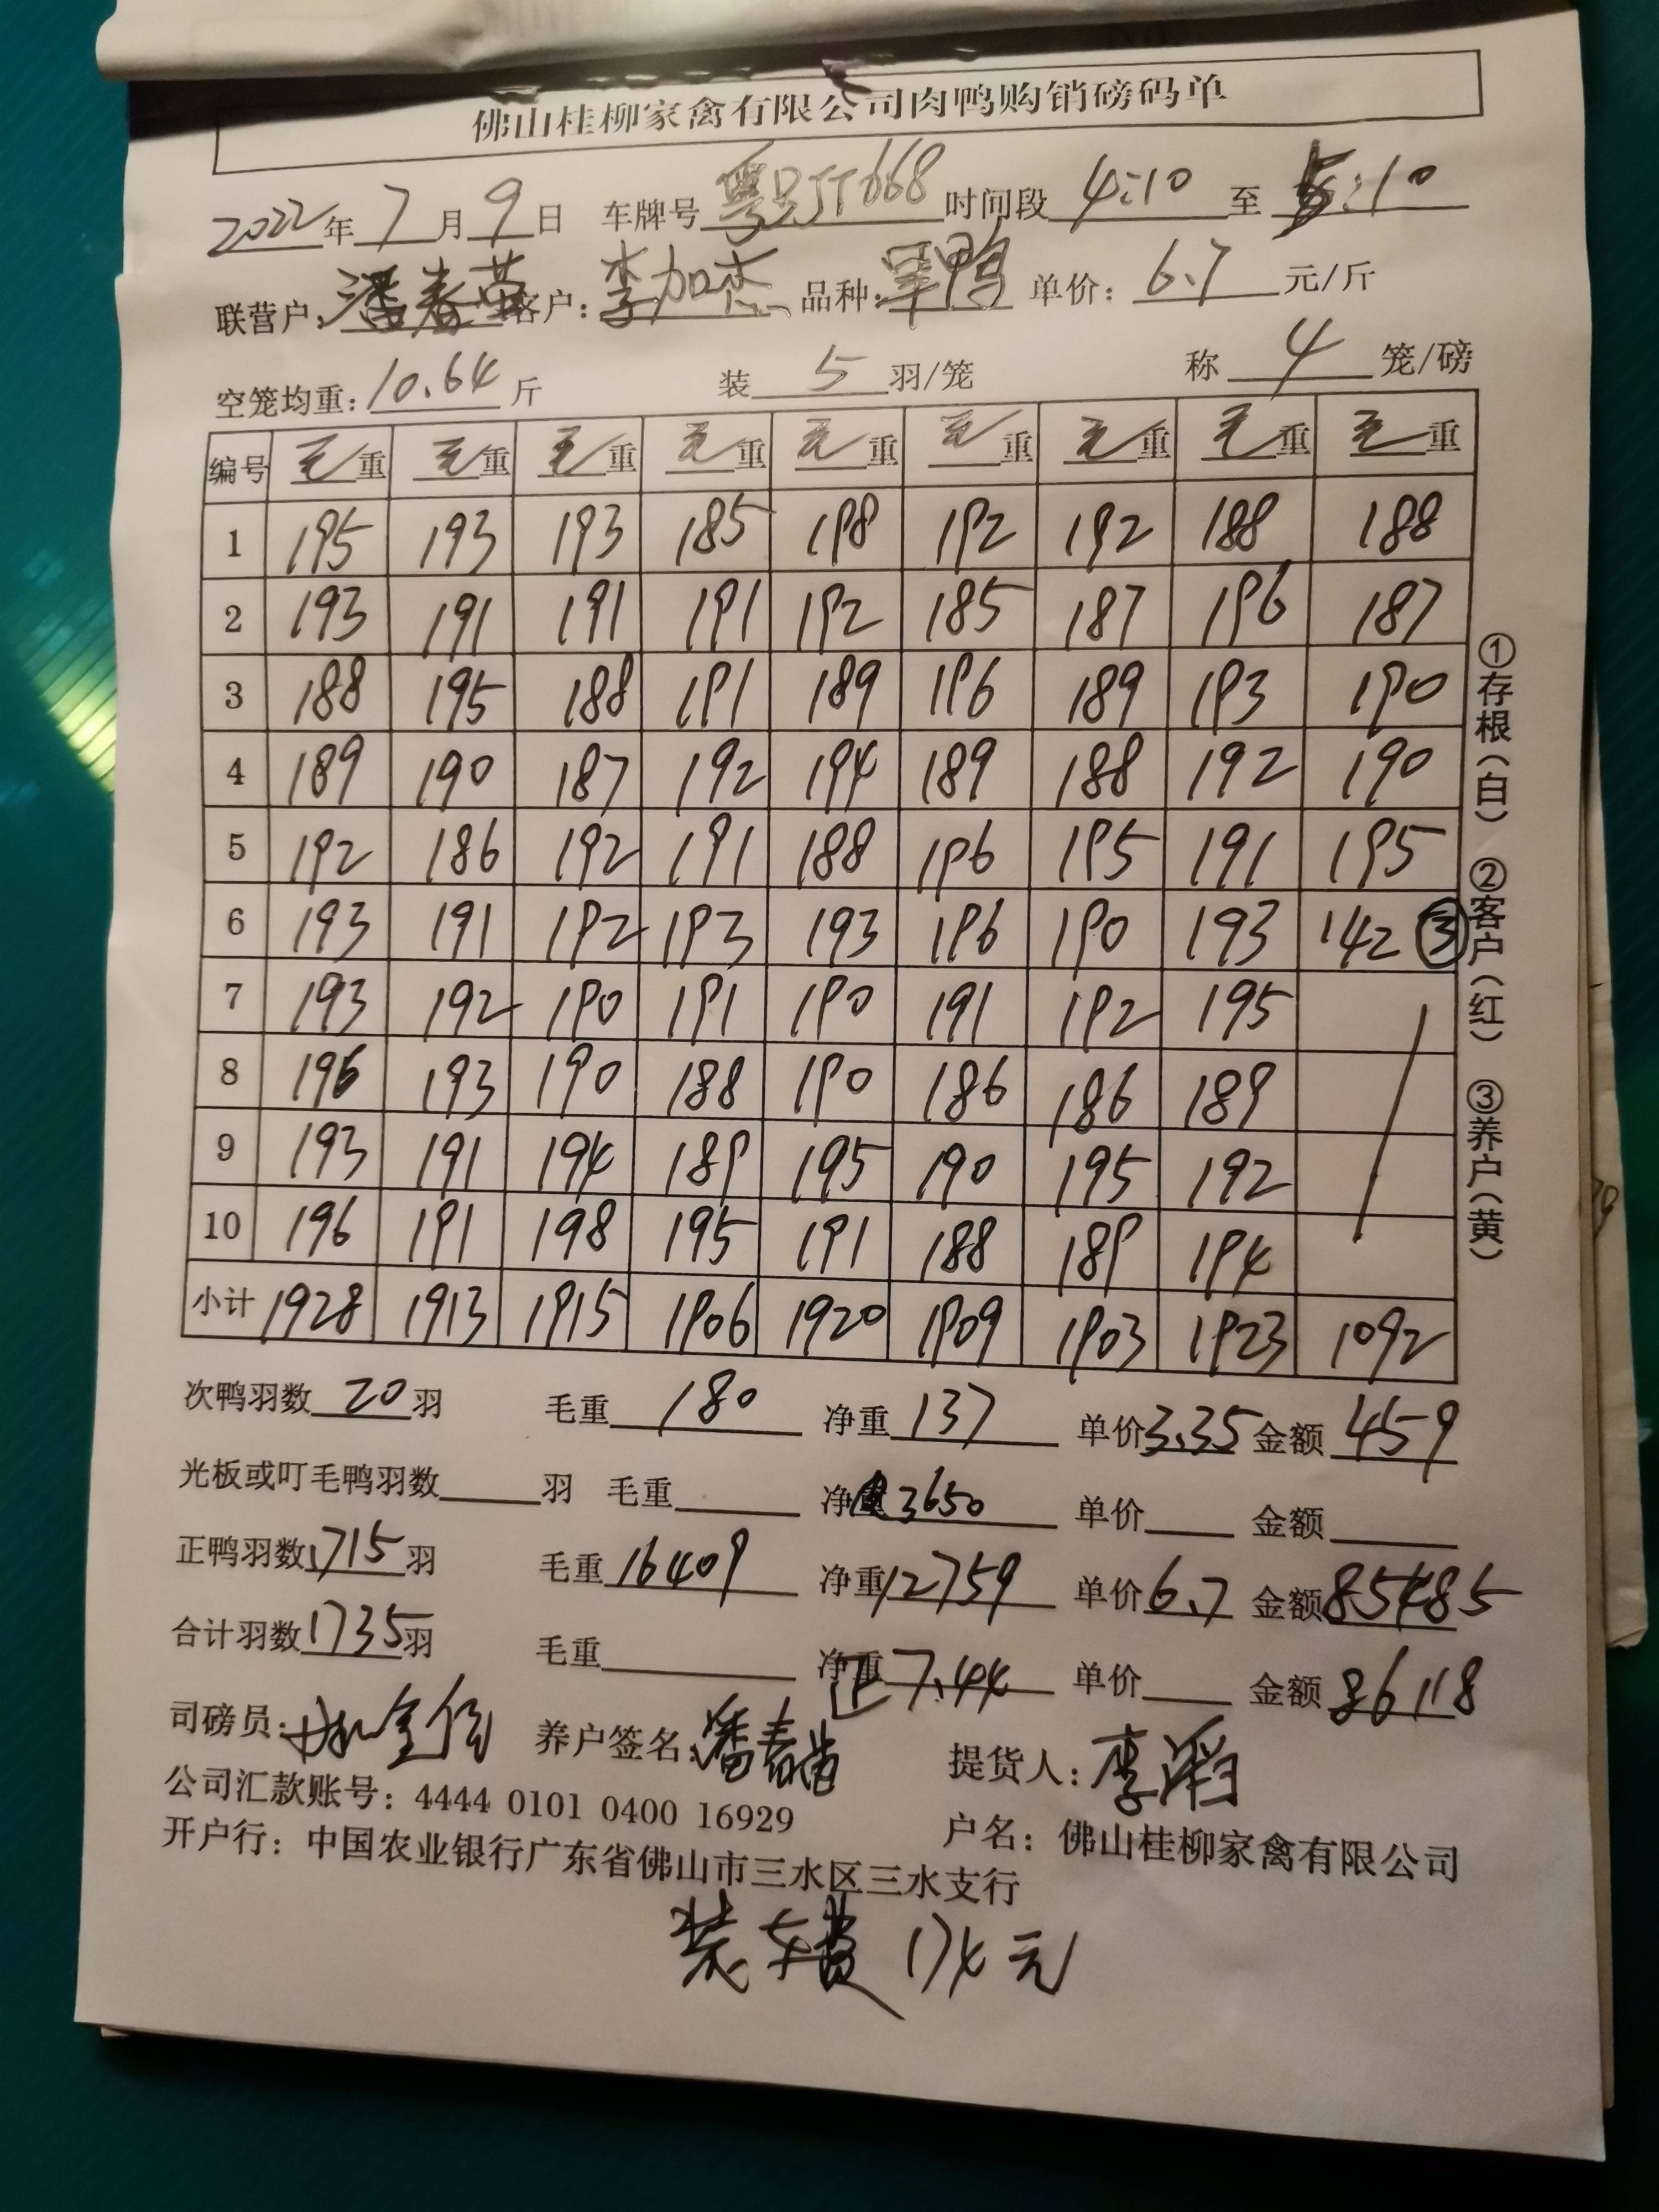 佛山桂柳家禽有限公司肉鸭购销磅码单
2022年7月9日 车牌号 粤 JT668 时间段 4:10 至 5:10
联营户: 潘春 客户: 李加杰 品种: 鸭 单价: 6.7 元/斤
空笼均重: 10.64 斤 装 5 羽/笼 称 4 笼/磅
编号 毛重 毛重 毛重 毛重 毛重 毛重 毛重 毛重 毛重
1 195 193 193 185 198 192 192 188 188
2 193 191 191 191 192 185 187 196 187
3 188 195 188 191 189 196 189 193 190
4 189 190 187 192 194 189 188 192 190
5 192 186 192 191 188 196 195 191 195
6 193 191 192 193 193 196 190 193 142 ③
7 193 192 190 191 190 191 192 195
8 196 193 190 188 190 186 186 189
9 193 191 194 189 195 190 195 192
10 196 191 198 195 191 188 189 194
小计 1928 1913 1915 1906 1920 1909 1903 1923 1092
①存根(白) ②客户(红) ③养户(黄)
次鸭羽数 20 羽 毛重 180 净重 137 单价 3.35 金额 459
光板或叮毛鸭羽数 羽 毛重 净重 3650 单价 金额
正鸭羽数 1715 羽 毛重 16409 净重 12759 单价 6.7 金额 85485
合计羽数 1735 羽 毛重 净重 7.44 单价 金额 86118
司磅员: 养户签名: 潘春 提货人: 李滔
公司汇款账号: 4444 0101 0400 16929
户名: 佛山桂柳家禽有限公司
开户行: 中国农业银行广东省佛山市三水区三水支行
装车费 174元